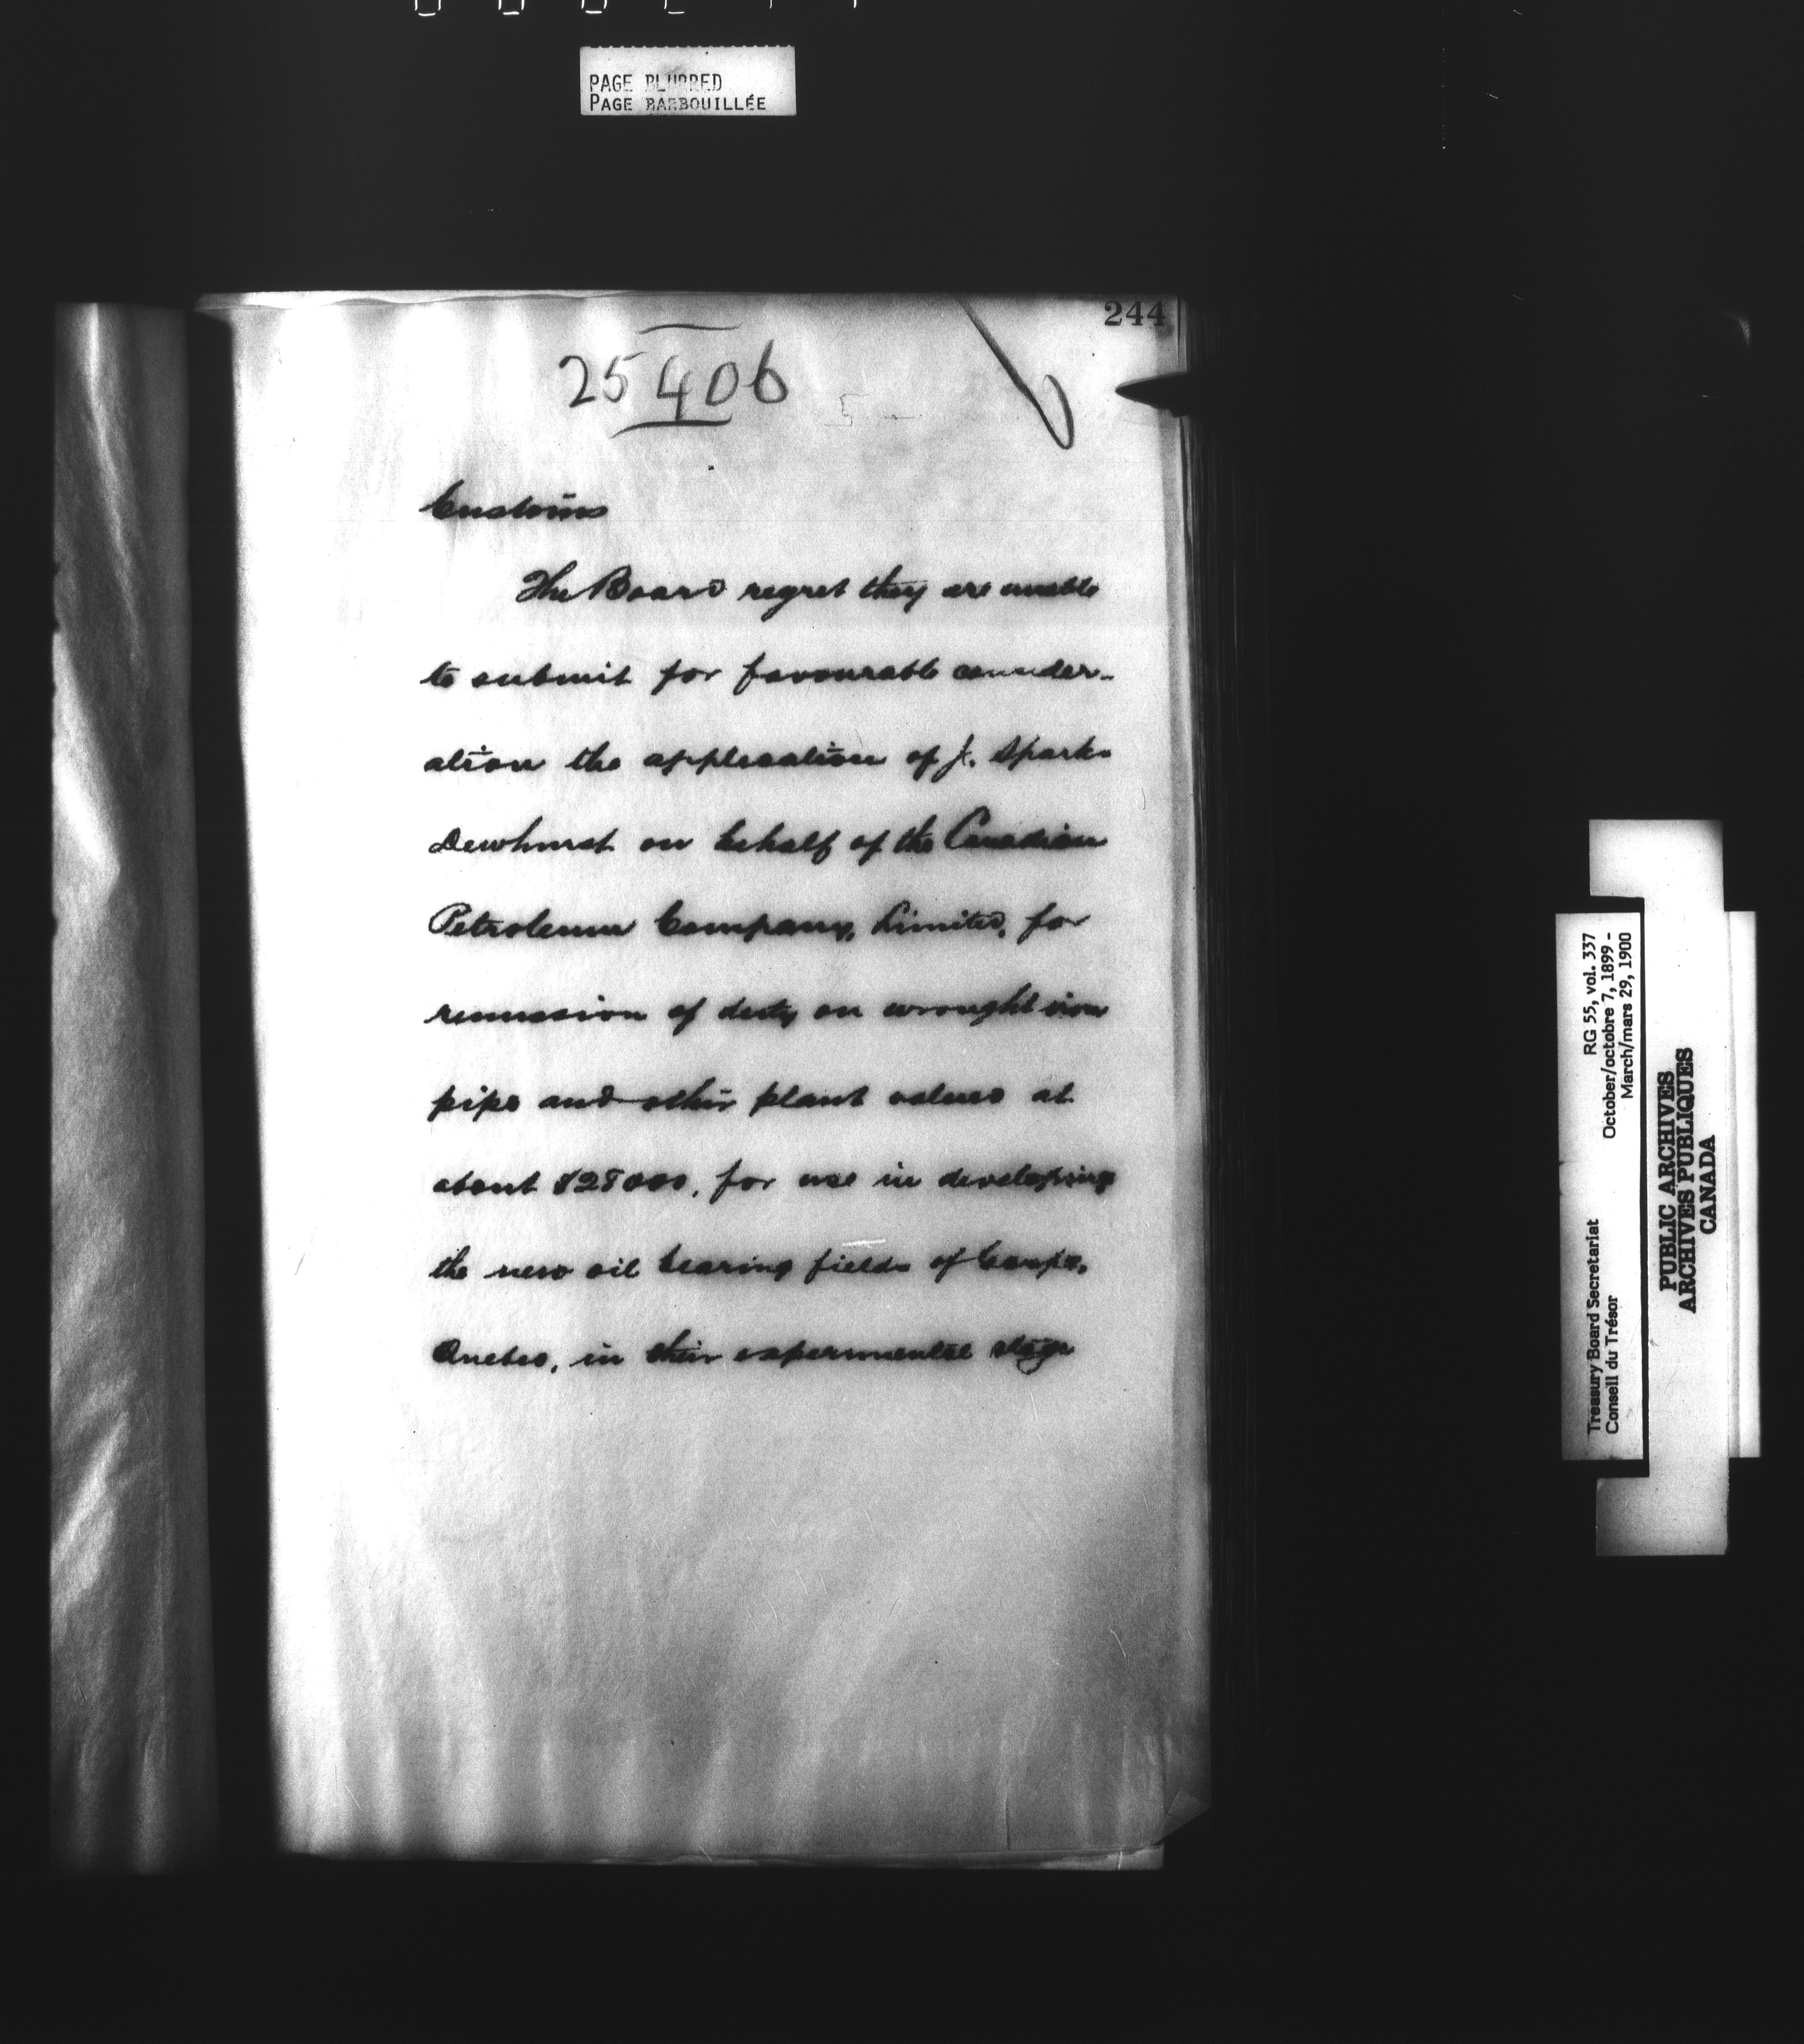 PAGE BLURRED
PAGE BARBOUILLÉE
244
25406
Customs
The Board regret they are unable
to submit for favourable consider-
ation the application of J. Sparks
Dewhurst on behalf of the Canadian
Petroleum Company, Limited, for
remission of duty on wrought iron
pipe and other plant valued at
about $28000, for use in developing
the new oil bearing fields of Gaspe,
Quebec, in their experimental stage
RG 55, vol. 337
October/octobre 7, 1899 -
March/mars 29, 1900
Treasury Board Secretariat
Conseil du Trésor
PUBLIC ARCHIVES
ARCHIVES PUBLIQUES
CANADA